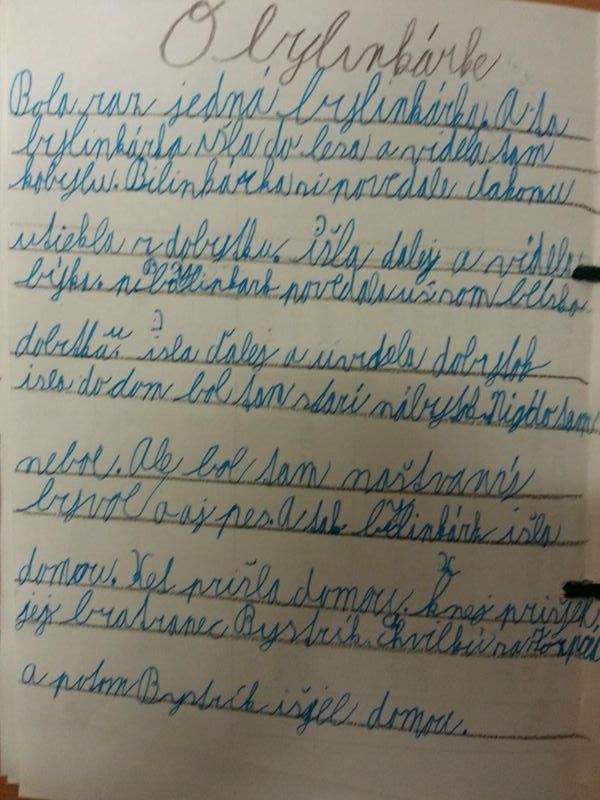 O bylinkárke
Bola raz jedná bylinkárka. A ta
bylinkárka išla do lesa a videla tam
kobylu. Bilinkárka si povedale dakomu
utiekla z dobytku. išla dalej a videla
býka. bilinkark povedala už som blísko
dobitka. išla ďalej a uvidela dobytok
isla do dom bol tam starí nábytok Nigdo tam
nebol. Ale bol tam naštvaní
byvol a aj pes. A tak bilinkárk išla
domou. Ket prišla domou. K nej prišjel
jej bratranec Bystrík chvilku sa
a potom Bystrík išjel domou.